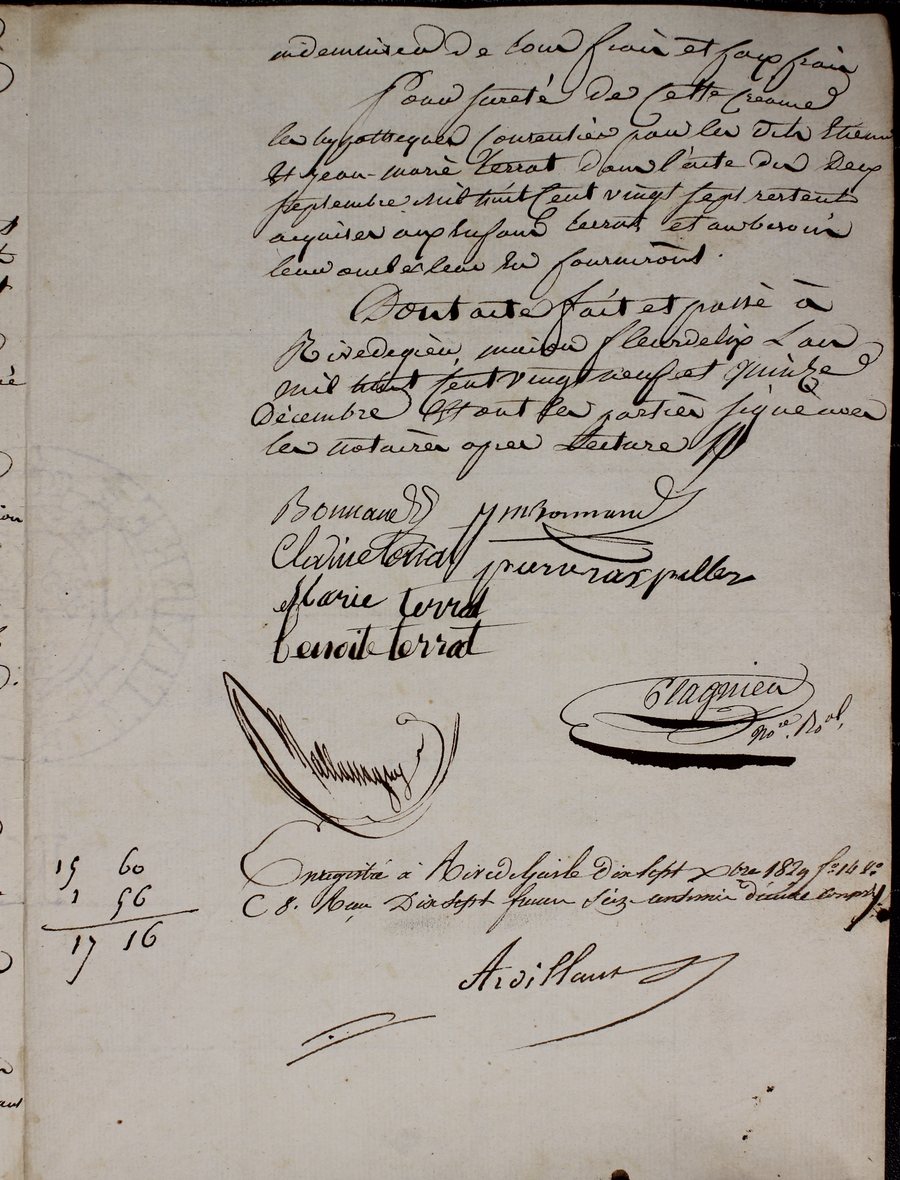 indemnisera de tous frais et faux frais
Pour sureté de cette créance
les hypotheques consenties par les dits Etienne
et jean-marie terrat dans l'acte du Deux
septembre mil huit cent vingt sept restent
acquises aux Enfans terrat et au besoin
leur
Dont acte fait et passé à
Rivedegier, maison fleurdelix L'an
mil huit cent vingt neuf et quinze
Décembre Et ont les parties signé avec
les notaires apres Lecture
Bonnand jm Bonnand
Claudine terrat
pierre raspiller
Marie terrat
benoite terrat
No.re Ro.al
15 60
1 56
17 16
Enregistré à Rivedegier le dix sept xbre 1829 fo. 14 Vo.
C 8. Reçu Dix sept francs seize centimes d.me compris
Ardillant